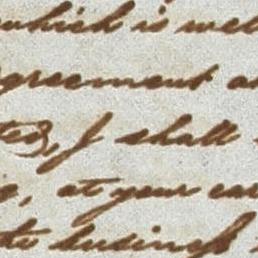 which is wel
greement a
ted, I shall
, at your ea
the business